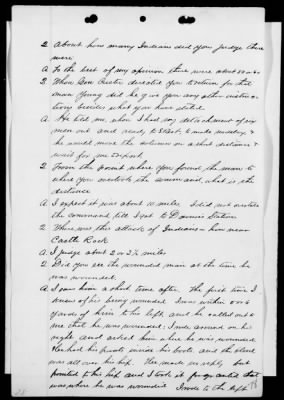 Q. About how many Indians did you judge there
were
A. To the best of my opinion there were about 50 or 60
Q. When Gen Custer directed you to return for that
man Young did he give you any other instruc-
tions besides what you have stated
A. He told me when I had my detachment of six
men out and ready to start, to make inquiry, &
he would move the column on a short distance &
wait for me to report
Q. From the point where you found the man to
where you overtook the command, what is the
distance
A. I expect it was about 10 miles. I did not overtake
the command till I got to Downers Station
Q. Where was this attack of Indians - how near
Castle Rock
A. I judge about 2 or 2½ miles
Q. Did you see the wounded man at the time he
was wounded
A. I saw him a short time after. The first time I
knew of his being wounded I was within 5 or 6
yards of him to his left, and he called out to
me that he was wounded; I rode around on his
right and asked him where he was wounded
He had his pants inside his boots and the blood
was all over his hip. He made no reply but
pointed to his hip and I took it for granted that
was where he was wounded I rode to the left
28